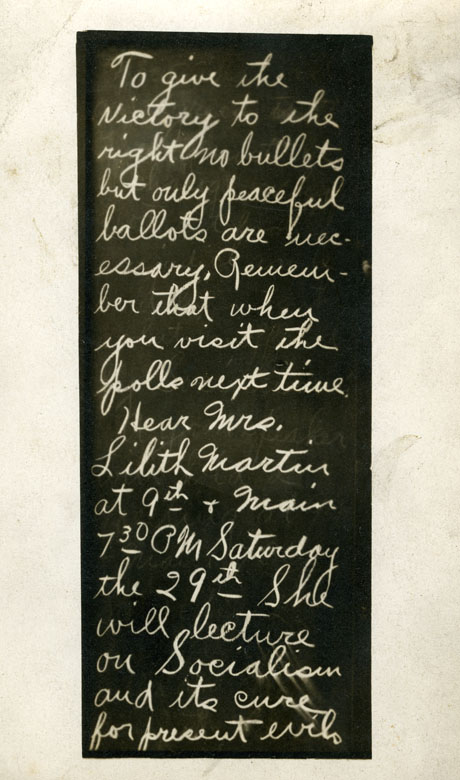 To give the
Victory to the
right no bullets
but only peaceful
ballots are nec-
essary. Remem-
ber that when
you visit the
polls next time.
Hear Mrs.
Lilith Martin
at 9th & Main
7 30 PM Saturday
the 29th She
will lecture
on Socialism
and its cure
for present evils